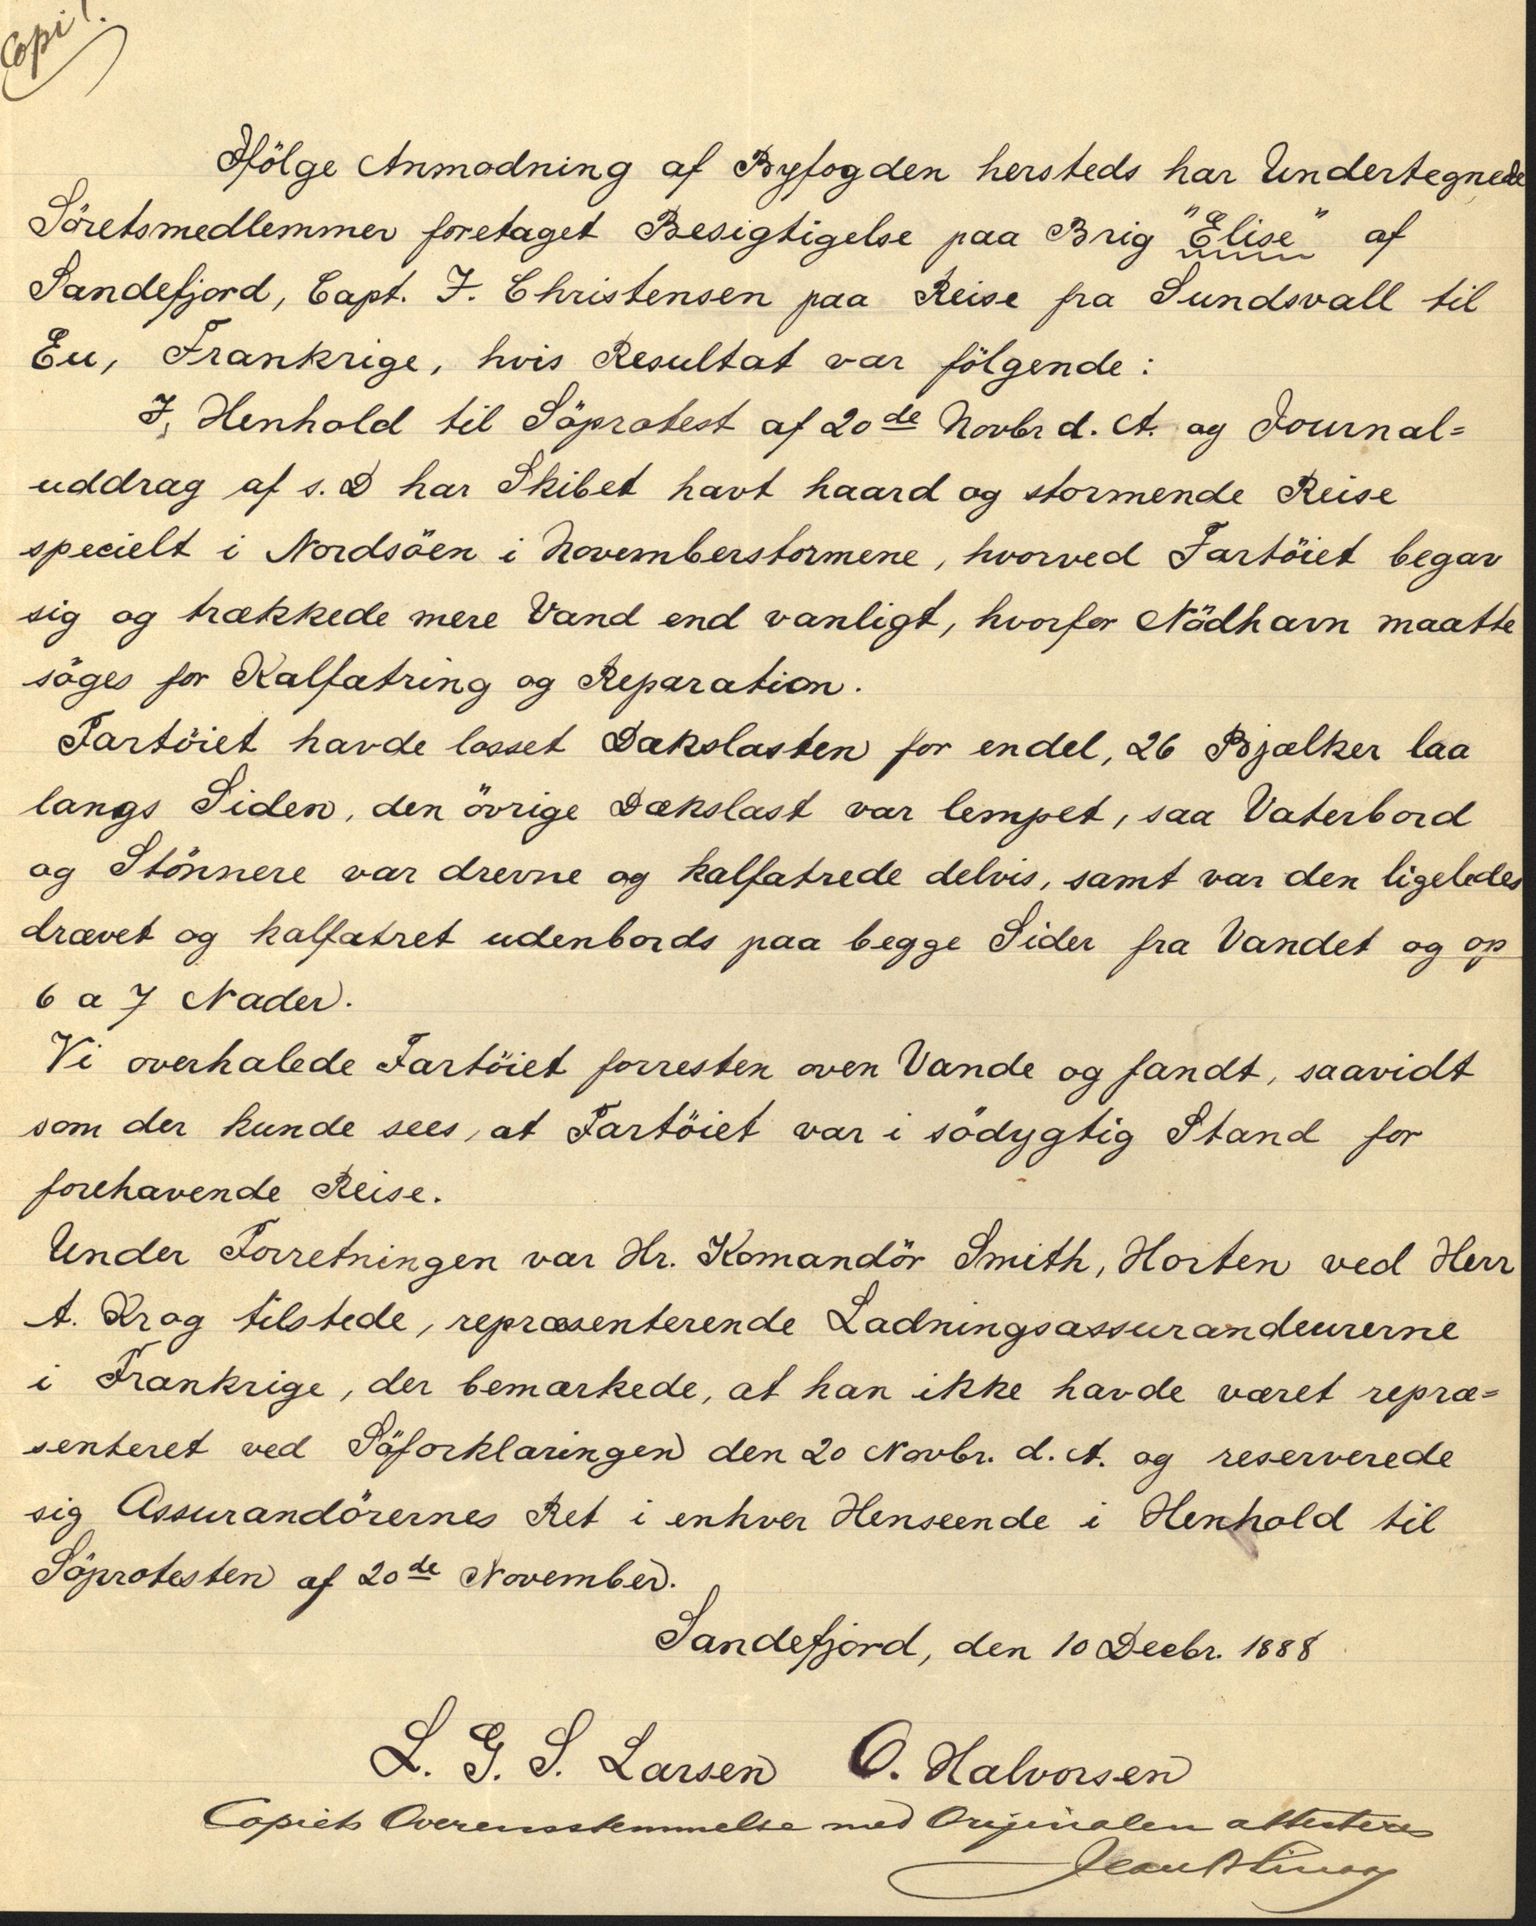 Copi!
Ifölge Anmodning af Byfogden hersteds har Undertegnede
Söretsmedlemmer foretaget Besigtigelse paa Brig "Elise" af
Sandefjord, Capt. J. Christensen paa Reise fra Sundsvall til
Eu, Frankrige, hvis Resultat var fölgende:
I, Henhold til Söprotest af 20de Novbr d. A. og Journal=
uddrag af s. D har Skibet havt haard og stormende Reise
specielt i Nordsöen i Novemberstormene, hvorved Fartöiet begav
sig og trækkede mere Vand end vanligt, hvorfor Nödhavn maatte
söges for Kalfatring og Reparation.
Fartöiet havde losset Dækslasten for endel, 26 Bjælker laa
langs Siden, den övrige Dækslast var lempet, saa Vaterbord
og Stönnere var drevne og kalfatrede delvis, samt var den ligeledes
drævet og kalfatret udenbords paa begge Sider fra Vandet og op
6 a 7 Nader.
Vi overhalede Fartöiet forresten oven Vande og fandt, saavidt
som der kunde sees, at Fartöiet var i södygtig Stand for
forehavende Reise.
Under Forretningen var Hr. Komandör Smith, Horten ved Herr
A. Krog tilstede, repræsenterende Ladningsassurandeurerne
i Frankrige, der bemærkede, at han ikke havde været repræ=
senteret ved Söforklaringen den 20 Novbr. d. A. og reserverede
sig Assurandörernes Ret i enhver Henseende i Henhold til
Söprotesten af 20de November.
Sandefjord, den 10 Decbr. 1888
L. G. S. Larsen O. Halvorsen
Copiets Overensstemmelse med Originalen attesteres